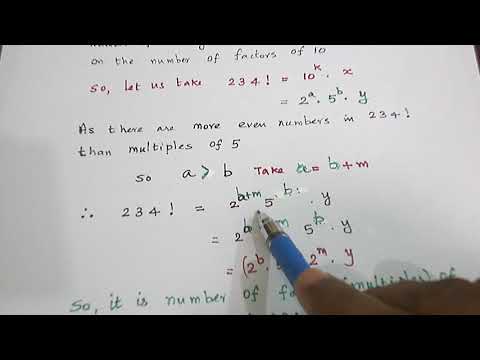 on the number of factors of 10
So, let us take 234! = 10^k · x
= 2^a · 5^b · y
As there are more even numbers in 234!
than multiples of 5
so a > b Take a = b + m
∴ 234! = 2^{b+m} · 5^b · y
= 2^b m 5^b · y
= (2^b · 2^m · y
So, it is number of of